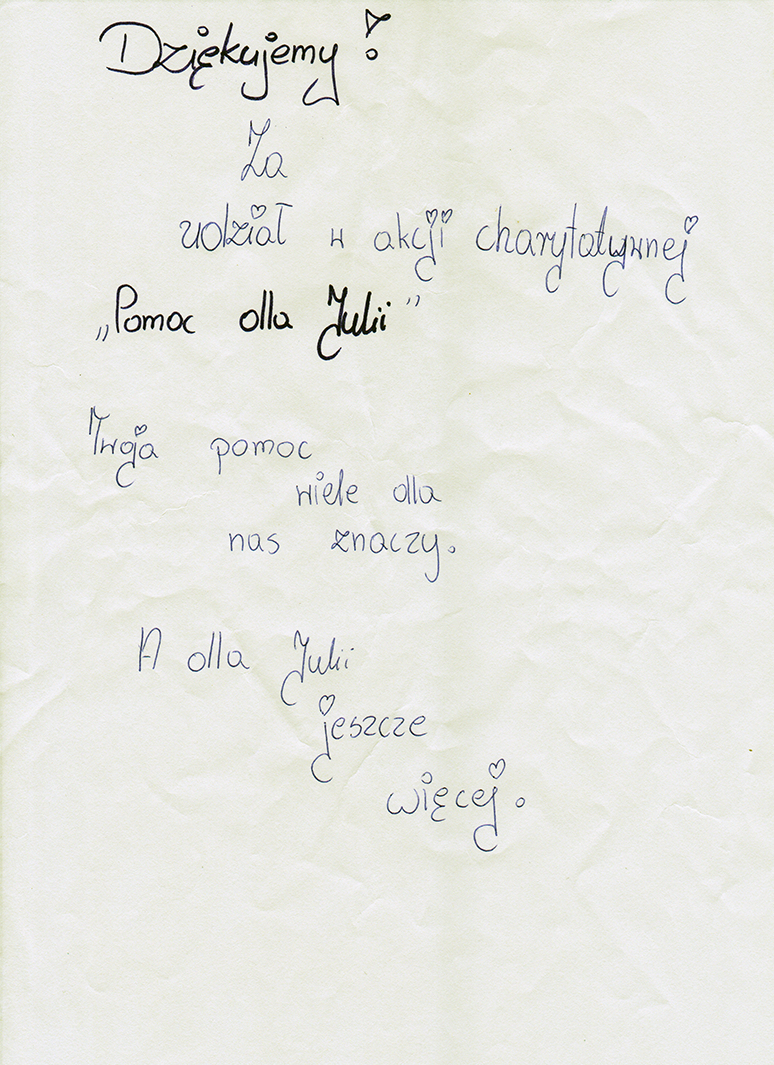 Dziękujemy!
Za
udział w akcji charytatywnej
„Pomoc dla Julii”
Twoja pomoc
wiele dla
nas znaczy.
A dla Julii
jeszcze
więcej.